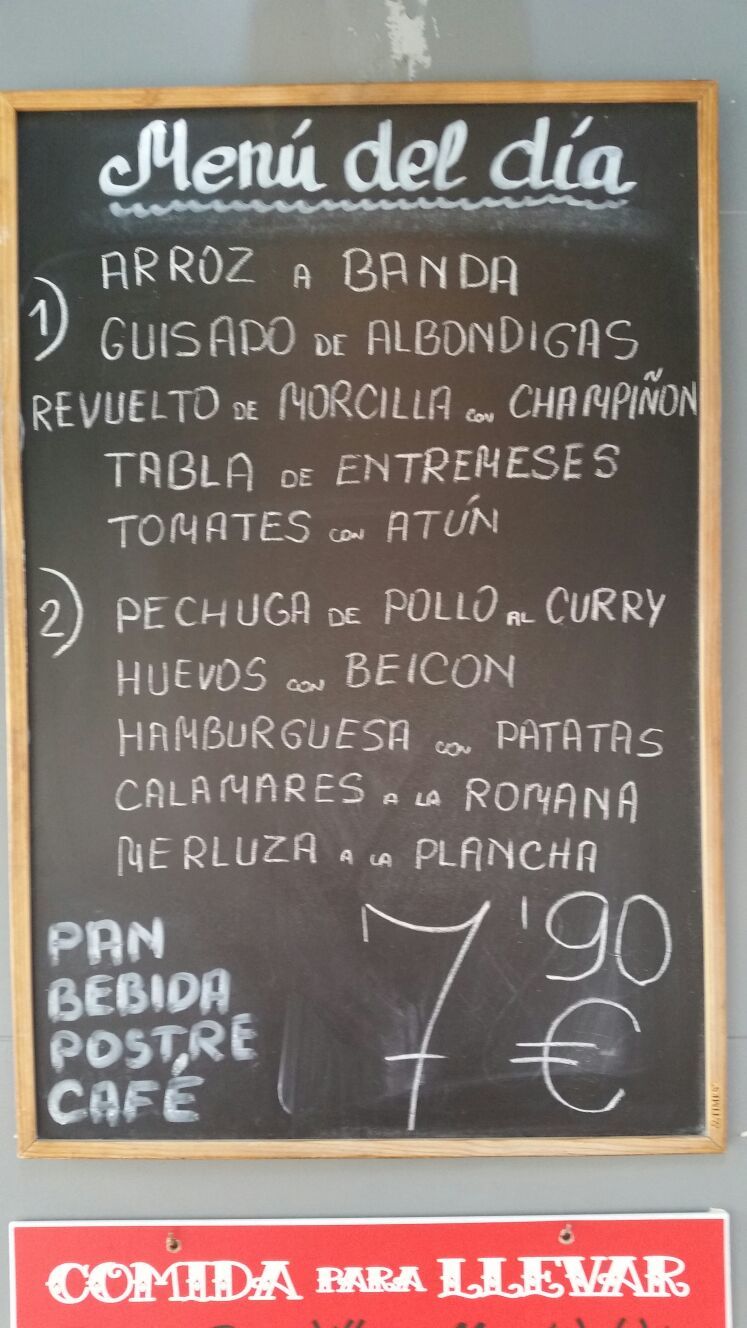 Menú del día
ARROZ A BANDA
1)
GUISADO DE ALBONDIGAS
REVUELTO DE MORCILLA CON CHAMPIÑON
TABLA DE ENTREMESES
TOMATES CON ATÚN
2) PECHUGA DE POLLO AL CURRY
HUEVOS CON BEICON
HAMBURGUESA CON PATATAS
CALAMARES A LA ROMANA
MERLUZA A LA PLANCHA
PAN
BEBIDA
POSTRE
CAFÉ
7'90
€
COMIDA PARA LLEVAR